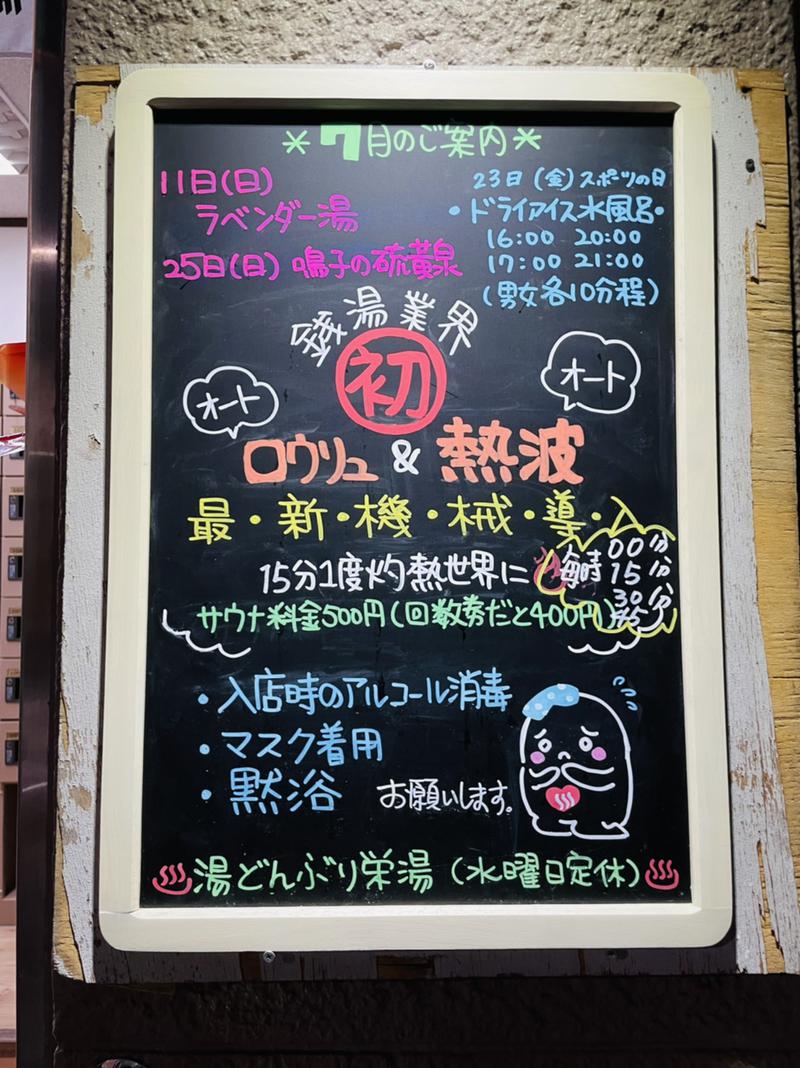 ＊7月のご案内＊
11日(日)
ラベンダー湯
25日(日) 鳴子の硫黄泉
23日(金)スポーツの日
・ドライアイス水風呂・
16:00 20:00
17:00 21:00
(男女各10分程)
銭湯業界
初
オート
オート
ロウリュ & 熱波
最・新・機・械・導・入
15分1度灼熱世界に
毎時
00分
15分
30分
45分
サウナ料金500円(回数券だと400円)
・入店時のアルコール消毒
・マスク着用
・黙浴
お願いします。
♨湯どんぶり栄湯(水曜日定休)♨